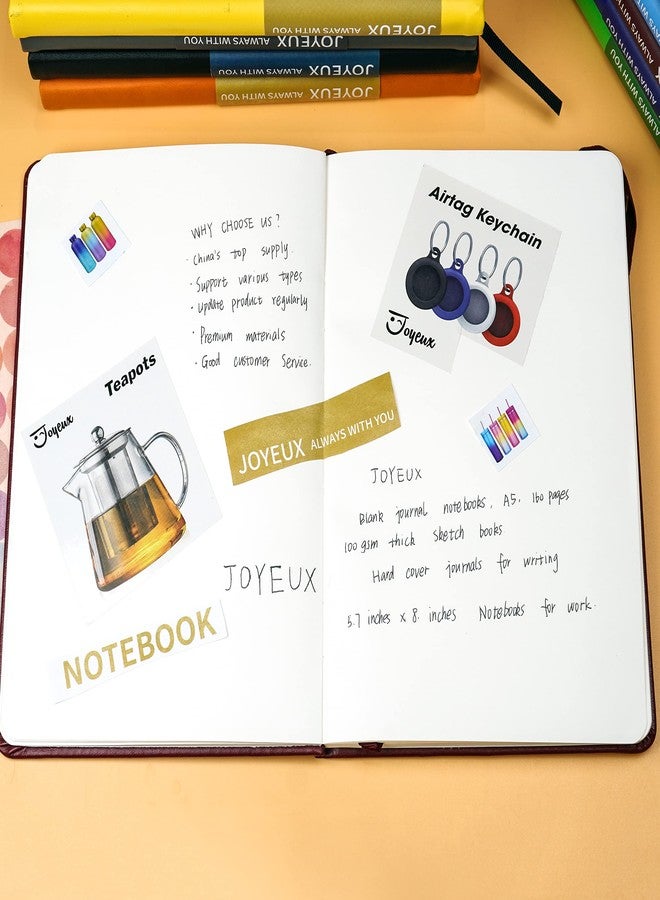 JOYEUX ALWAYS WITH YOU
JOYEUX ALWAYS WITH YOU
JOYEUX ALWAYS WITH YOU
JOYEUX ALWAYS WITH YOU
ALWAYS WITH YOU
ALWAYS WITH YOU
ALWAYS WITH YOU
WHY CHOOSE US?
· China's top supply.
· Support various types
· update product regularly
· Premium materials
· Good customer Service.
Teapots
Joyeux
JOYEUX ALWAYS WITH YOU
JOYEUX
NOTEBOOK
Airtag Keychain
Joyeux
JOYEUX
Blank journal notebooks, A5, 160 pages
100 gsm thick Sketch books
Hard cover journals for writing
5.7 inches x 8. inches Notebooks for work.